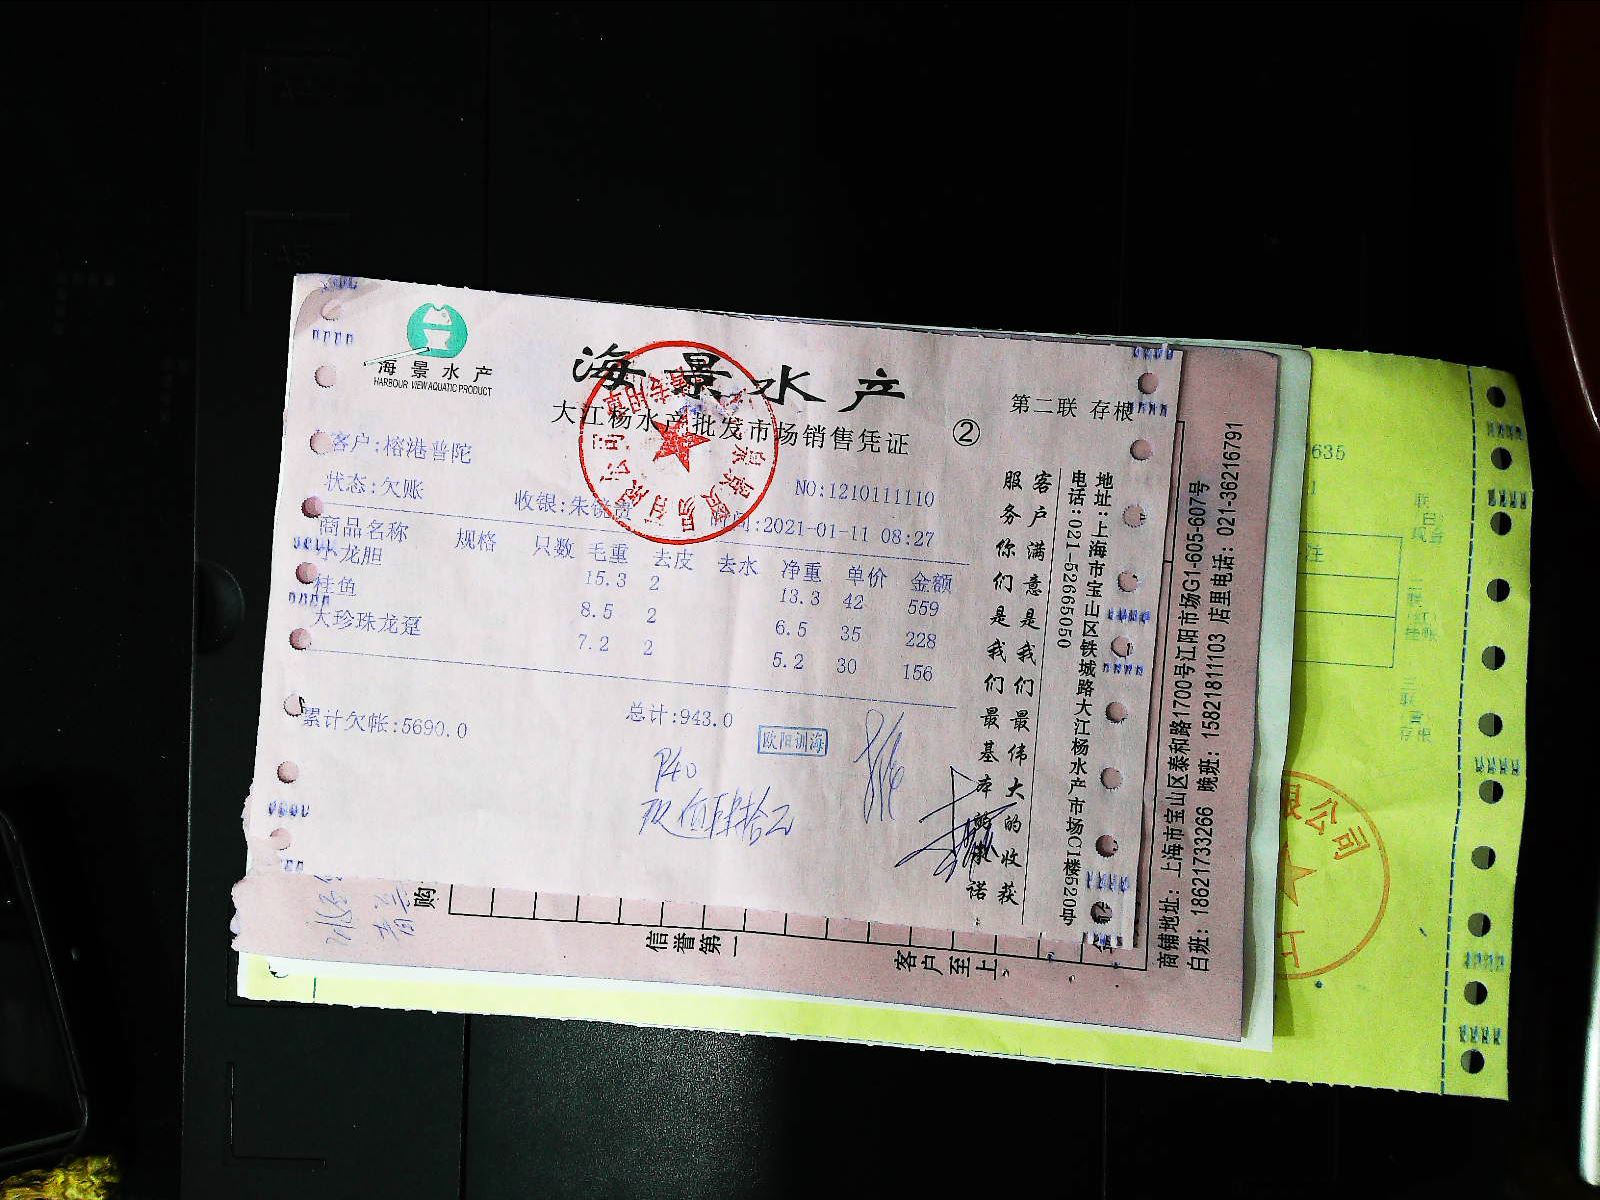 海景水产
HARBOUR VIEW AQUATIC PRODUCT
海景水产
大江杨水产批发市场销售凭证
②
第二联 存根
客户:榕港普陀
状态:欠账
收银:朱锐贵
NO:1210111110
时间:2021-01-11 08:27
商品名称 规格 只数 毛重 去皮 去水 净重 单价 金额
小龙胆 15.3 2 13.3 42 559
桂鱼 8.5 2 6.5 35 228
大珍珠龙趸 7.2 2 5.2 30 156
累计欠帐:5690.0
总计:943.0
欧阳训海
客户满意是我们最伟大的收获
服务你们是我们最基本的承诺
地址:上海市宝山区铁城路大江杨水产市场C1楼520号
电话:021-52665050
商铺地址:上海市宝山区泰和路1700号江阳市场G1-605-607号
白班:18621733266 晚班:15821811103 店里电话:021-36216791
购
信誉第一
客户至上
635
注
限公司